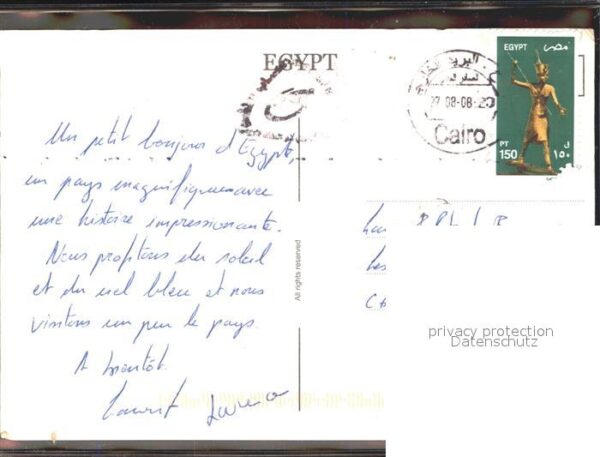 EGYPT
البريد
27-08-08-20
Cairo
EGYPT مصر
PT
150
ل
١٥٠
Un petit bonjour d'Egypte,
un pays magnifique avec
une histoire impressionante.
Nous profitons du soleil
et du ciel bleu et nous
visitons un peu le pays.
A bientôt.
Laurent
All rights reserved
privacy protection
Datenschutz